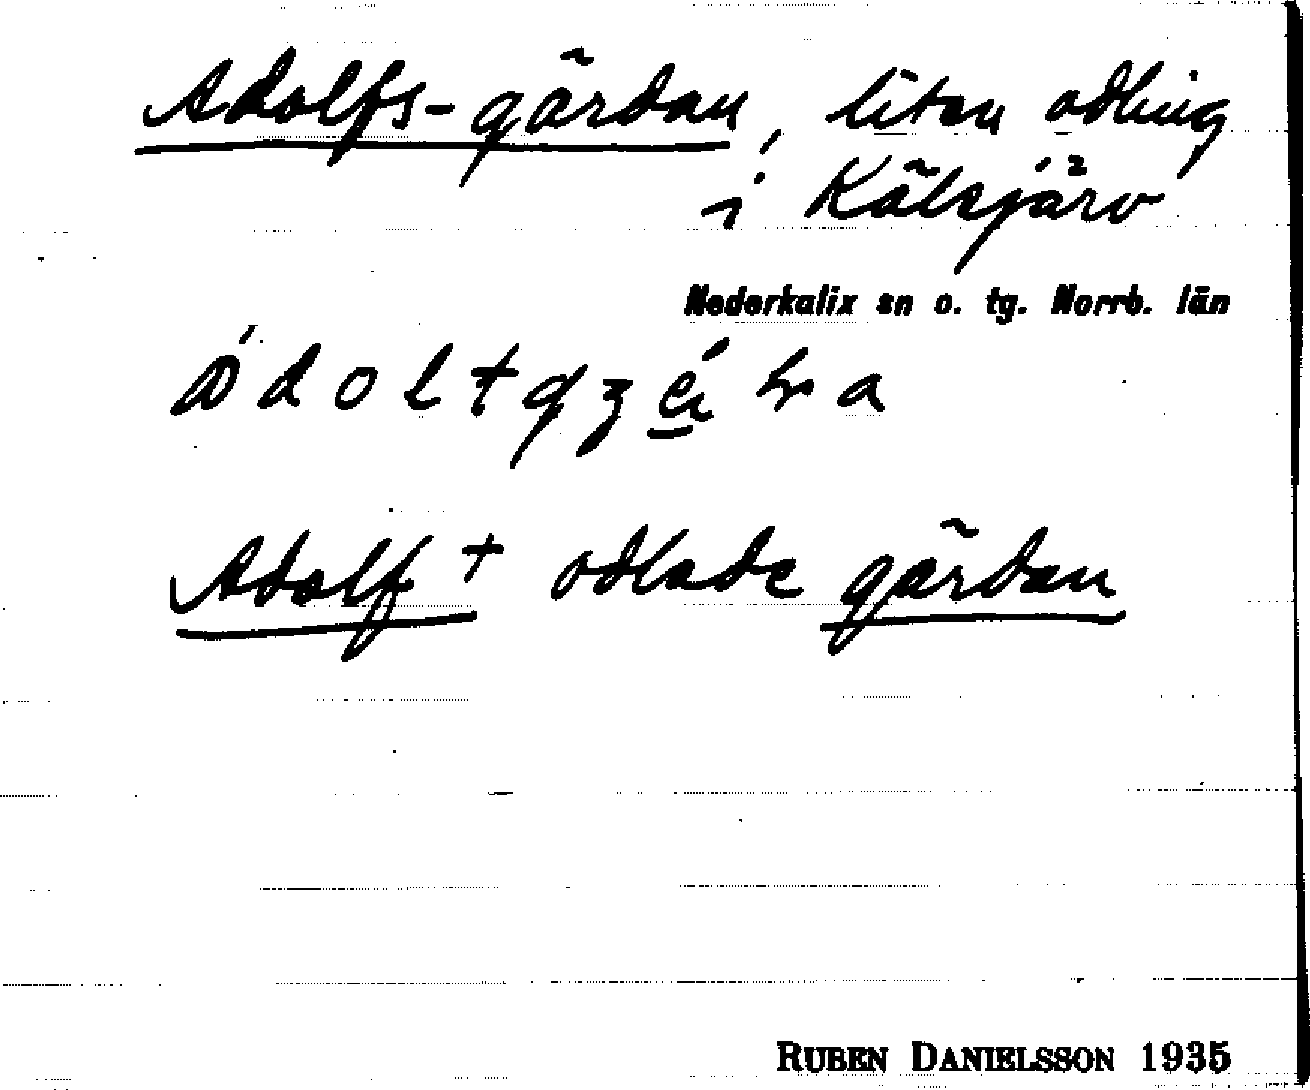 Adolfs-gärdan, liten odling
i Kälsjärv
Nederkalix sn o. tg. Norrb. län
Adolf † odlade gärdan
RUBEN DANIELSSON 1935